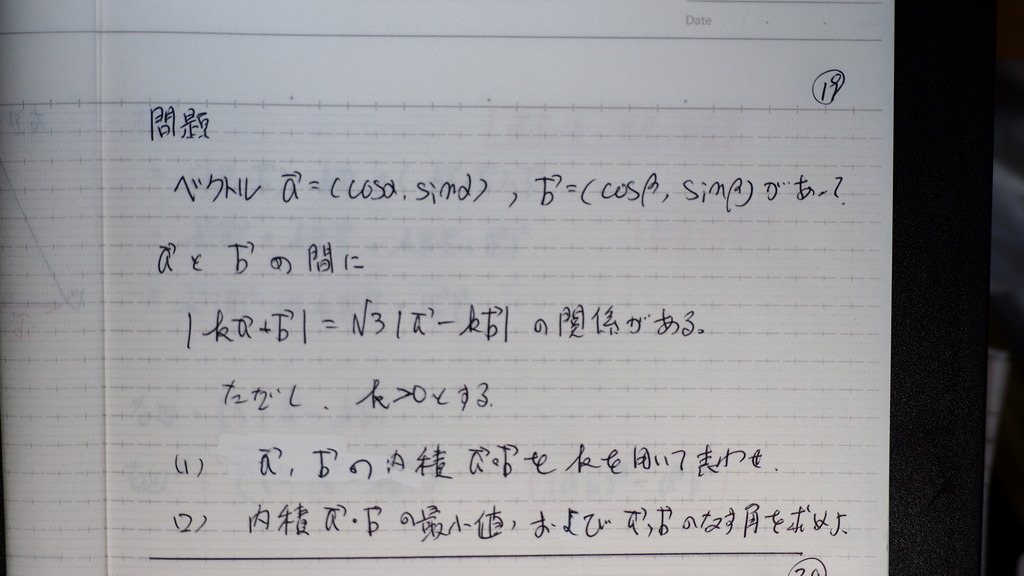 Date
19
問題
ベクトル a⃗=(cosα, sinα), b⃗=(cosβ, sinβ)があって
a⃗とb⃗の間に
|ka⃗+b⃗|=√3|a⃗-kb⃗|の関係がある。
ただし、k>0とする。
(1) a⃗, b⃗の内積 a⃗・b⃗をkを用いて表わせ.
(2) 内積 a⃗・b⃗の最小値, および a⃗, b⃗のなす角を求めよ.
20